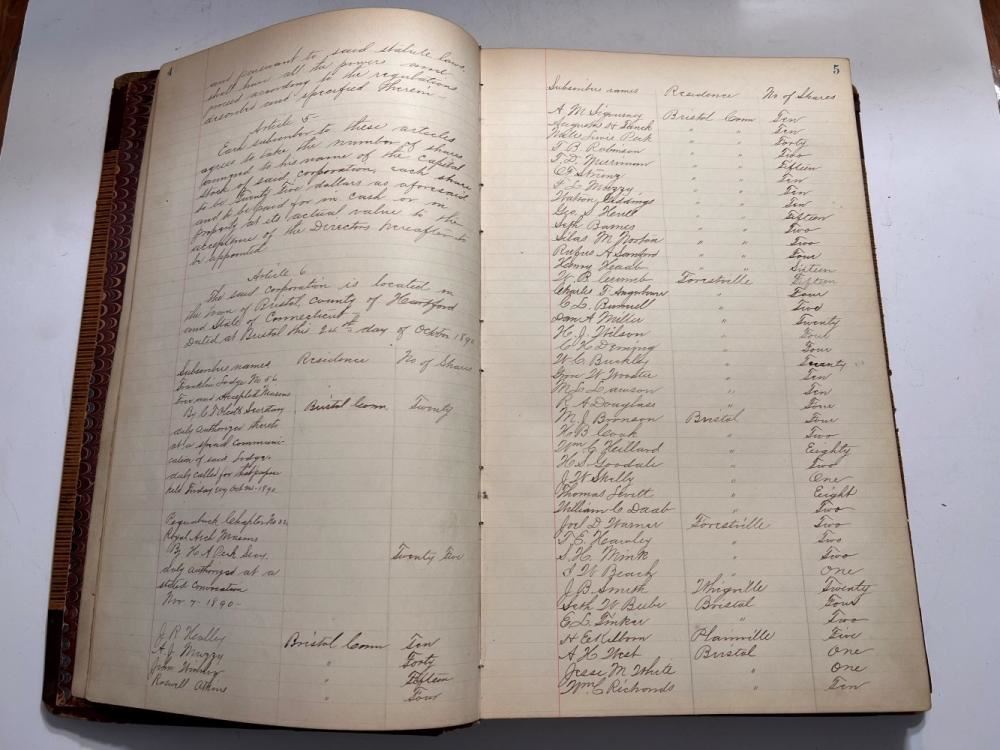 4
and pursuant to said statute laws.
shall have all the powers and
proceed according to the regulations
described and specified therein
Article 5
Each subscriber to these articles
agrees to take the number of shares
annexed to his name of the capital
stock of said corporation, each share
to be Twenty Five dollars as aforesaid
and to be paid for in cash or in
property at its actual value to the
acceptance of the Directors hereafter to
be appointed
Article 6
The said corporation is located in
the town of Bristol, county of Hartford
and State of Connecticut
Dated at Bristol this 24th day of 1890
Subscribers names Residence No of Shares
Franklin Lodge No 56
Free and Accepted Masons
By Secretary Bristol Conn Twenty
duly authorized thereto
at a special communi-
cation of said Lodge.
duly called for that purpose
held Friday Oct 24-1890
Pequabuck Chapter No 32
Royal Arch Masons
By H A Peck Secy. Twenty Five
duly authorized at a
stated Convocation
Nov 7-1890-
J. R. Bristol Conn Ten
A. J. Muzzy " Forty
" Fifteen
Roswell Atkins " Four
5
Subscribers names Residence No of Shares
A. M. Sigourney Bristol Conn Ten
Augustus H Funck " " Ten
Miles Lewis Peck " " Forty
T. B. Robinson " " Two
T. D. Merriman " " Fifteen
Strong " " Ten
F. L. Muzzy " " Ten
Watson Giddings " " Ten
Geo. S. " " Fifteen
Seth Barnes " " Two
Silas M Norton " " Two
Rufus A Sanford " " Four
Henry " " Sixteen
W. B. Crumb Forestville Fifteen
Charles T. " Four
C. L. Bunnell " Five
Dan A Miller " Twenty
H. J. Wilson " Four
C. H. Deming " Four
W. C. Buckley " Twenty
W Wooster " Ten
M. L. Lawson " Ten
R A Douglass " Four
M. J. Bronson Bristol Four
H. B. Cook " Two
Wm. G " Eighty
H. S. Goodale " Two
J. W. Skelly " One
Thomas " Eight
William C Daab " Two
Joel D Warner Forestville Two
T. E. " Two
S. H. Mink " Two
S W Beach " One
J. B. Smith Whigville Twenty
Seth W Beebe Bristol Four
E. L. Tinker " Two
H E Plainville Five
A H West Bristol One
Jesse M White " One
Wm C Richards " Ten